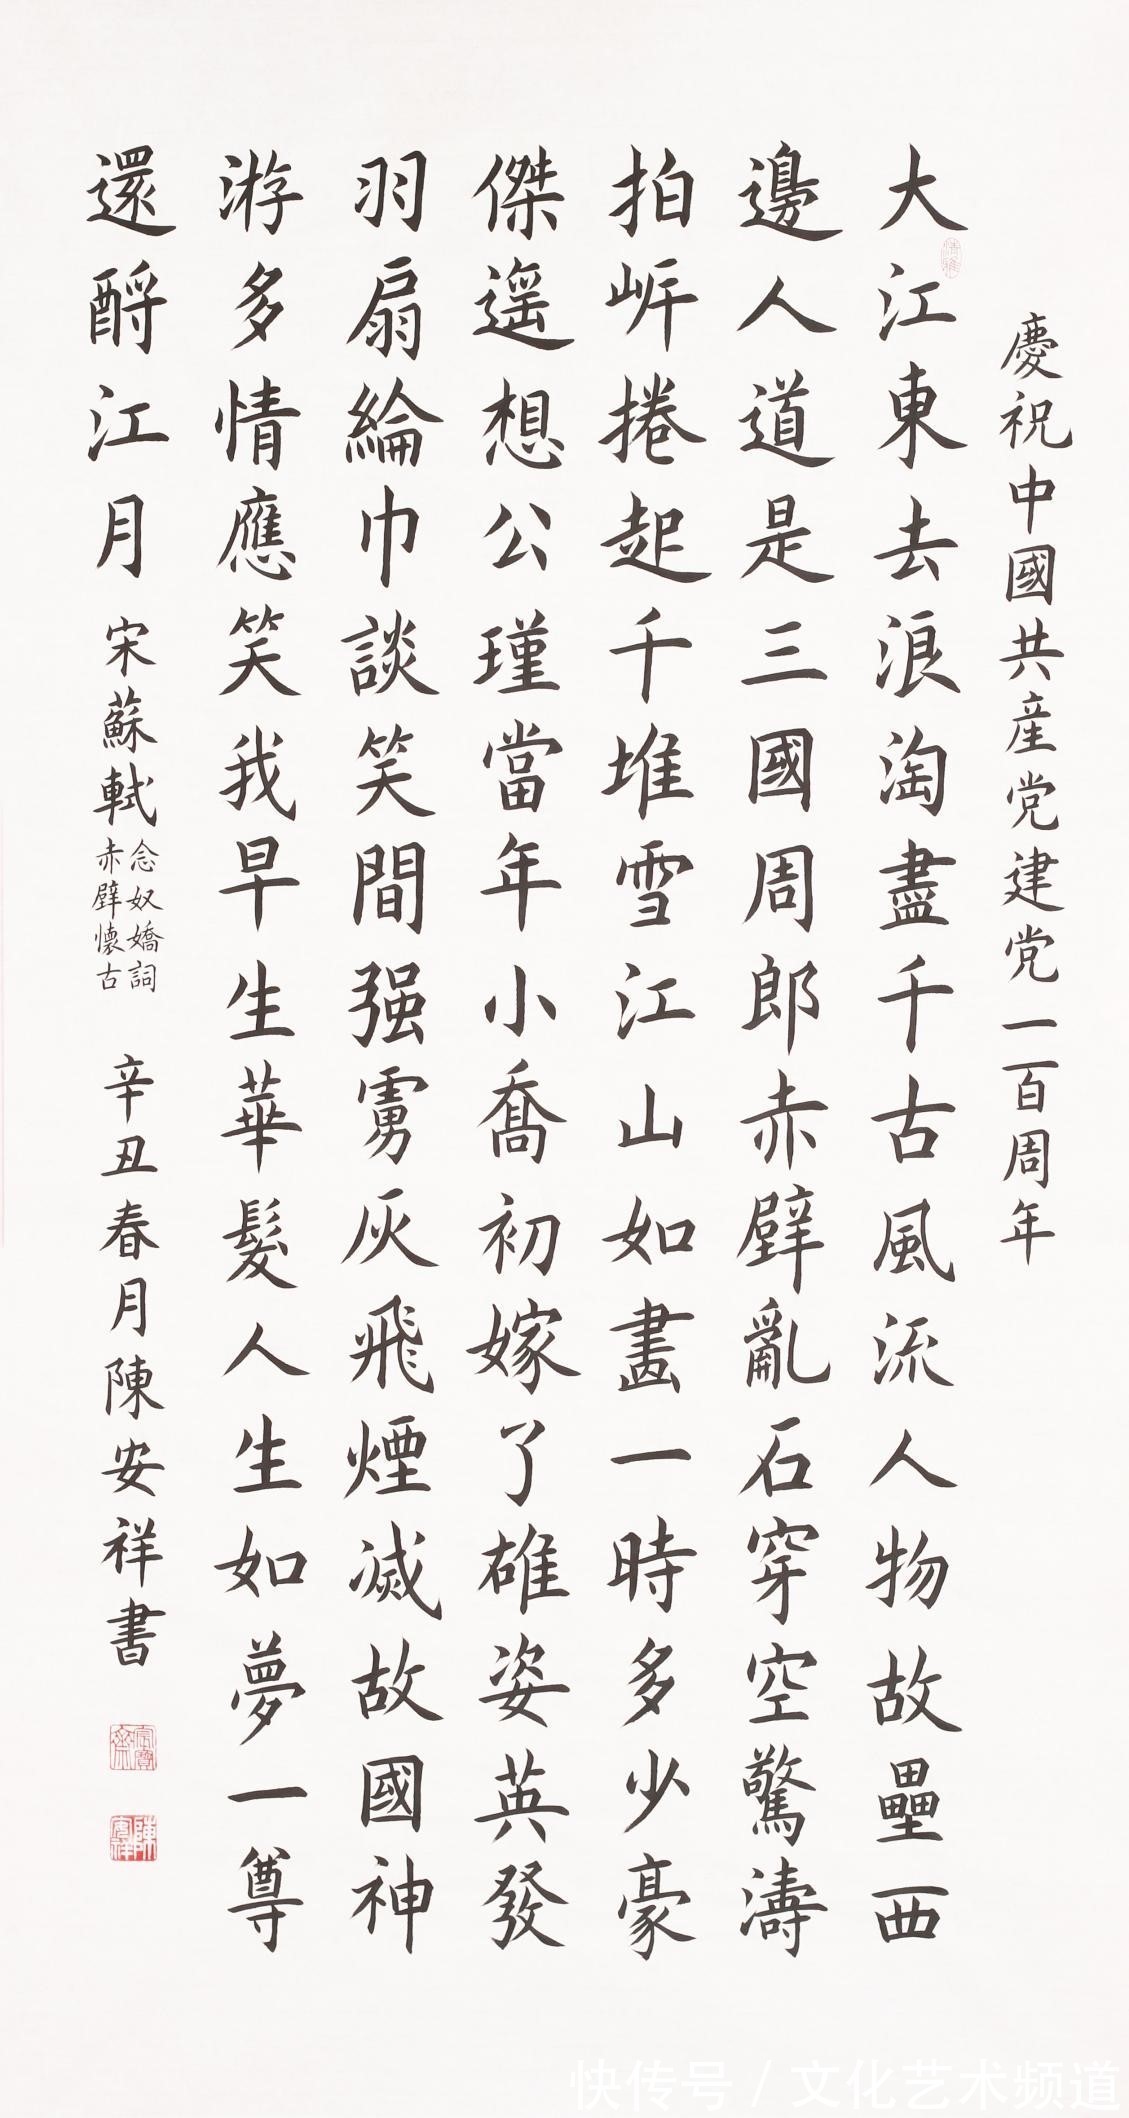 慶祝中國共産党建党一百周年
大江東去浪淘盡千古風流人物故壘西
邊人道是三國周郎赤壁亂石穿空驚濤
拍岸捲起千堆雪江山如畫一時多少豪
傑遥想公瑾當年小喬初嫁了雄姿英發
羽扇綸巾談笑間强虜灰飛煙滅故國神
游多情應笑我早生華髮人生如夢一尊
還酹江月 宋蘇軾
念奴嬌詞
赤壁懷古
辛丑春月陳安祥書
快传号 / 文化艺术频道